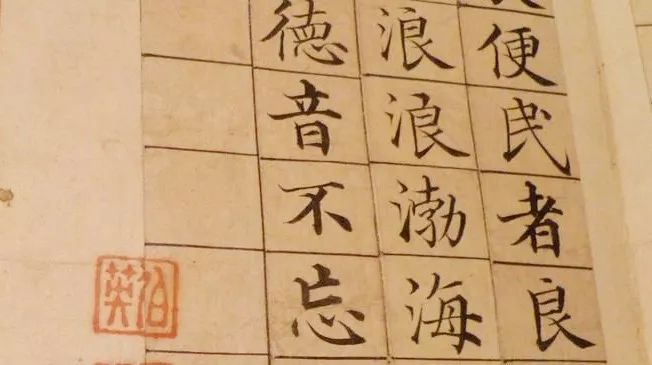 便民者良
浪浪渤海
德音不忘
伯英